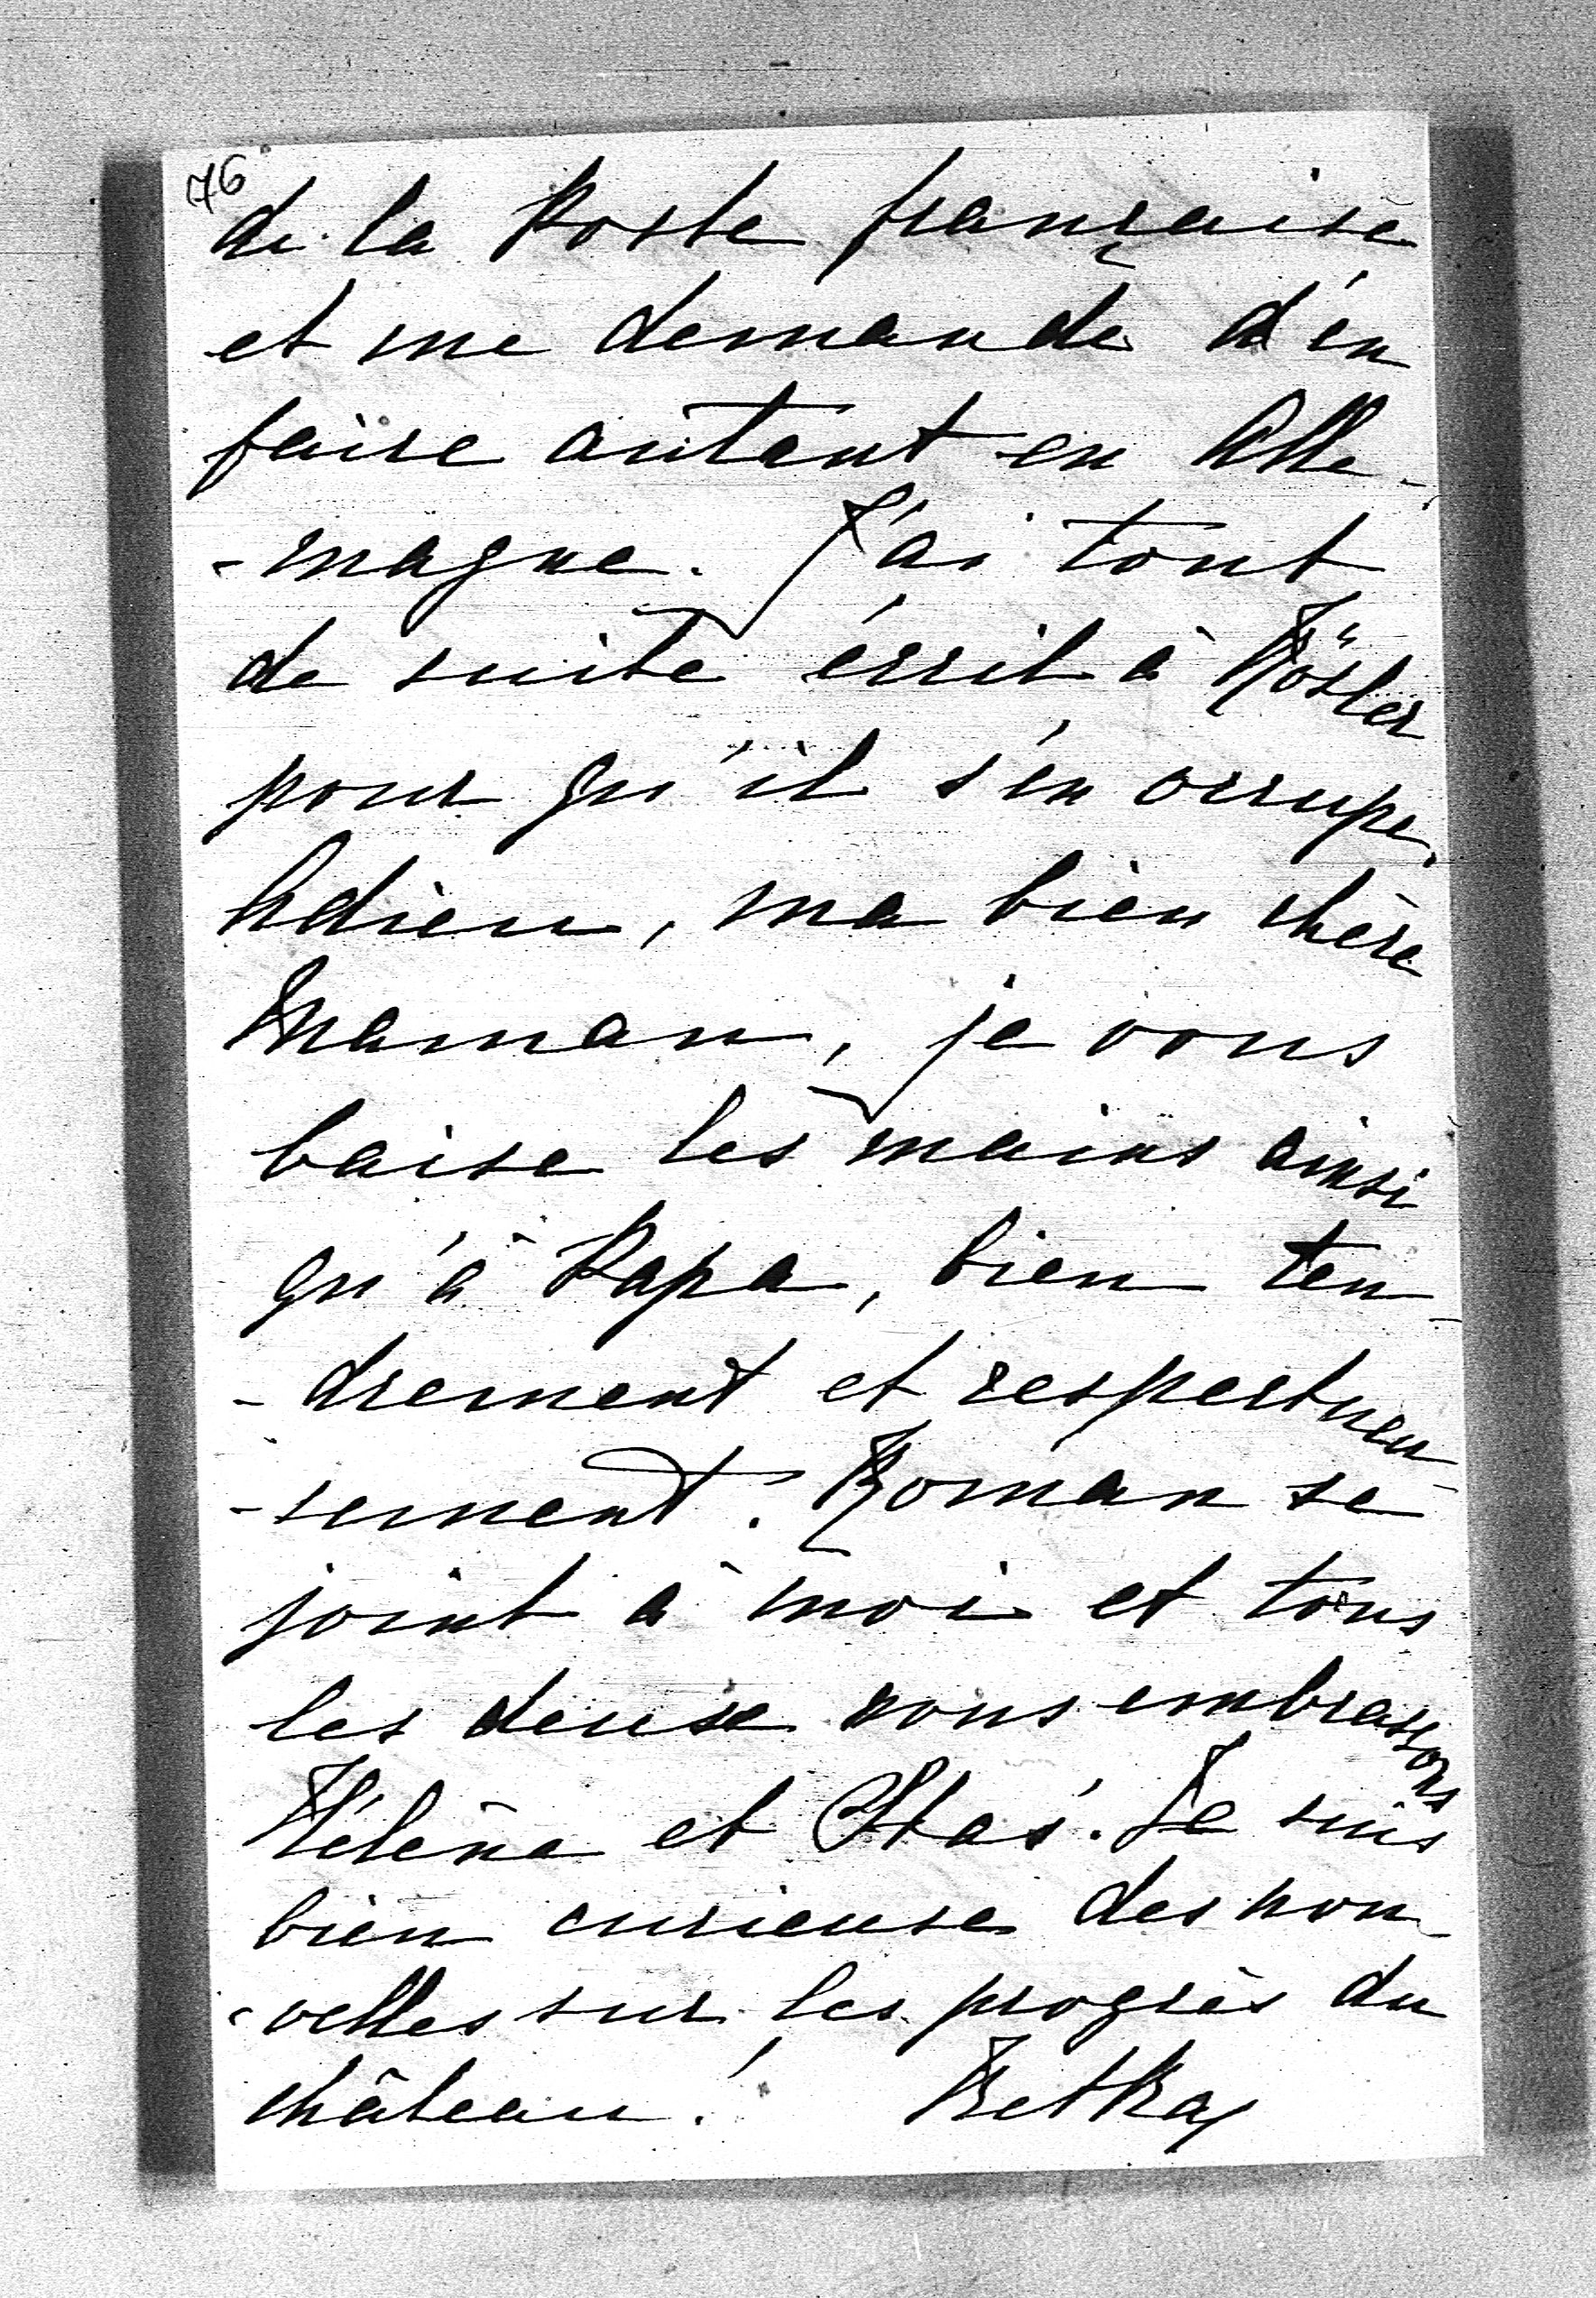 76
de la Poste française
et me demande d'en
faire autant en Alle-
-magne. J'ai tout
de suite écrit à Rösler
pour qu'il s'en occupe.
Adieu, ma bien chère
Maman, je vous
baise les mains ainsi
qu'à Papa, bien ten-
-drement et respectueu-
-sement. Roman se
joint à moi et tous
les deux nous embrassons
Hélène et Staś. Je suis
bien curieuse des nou-
-velles sur les progrès du
château! BetKa